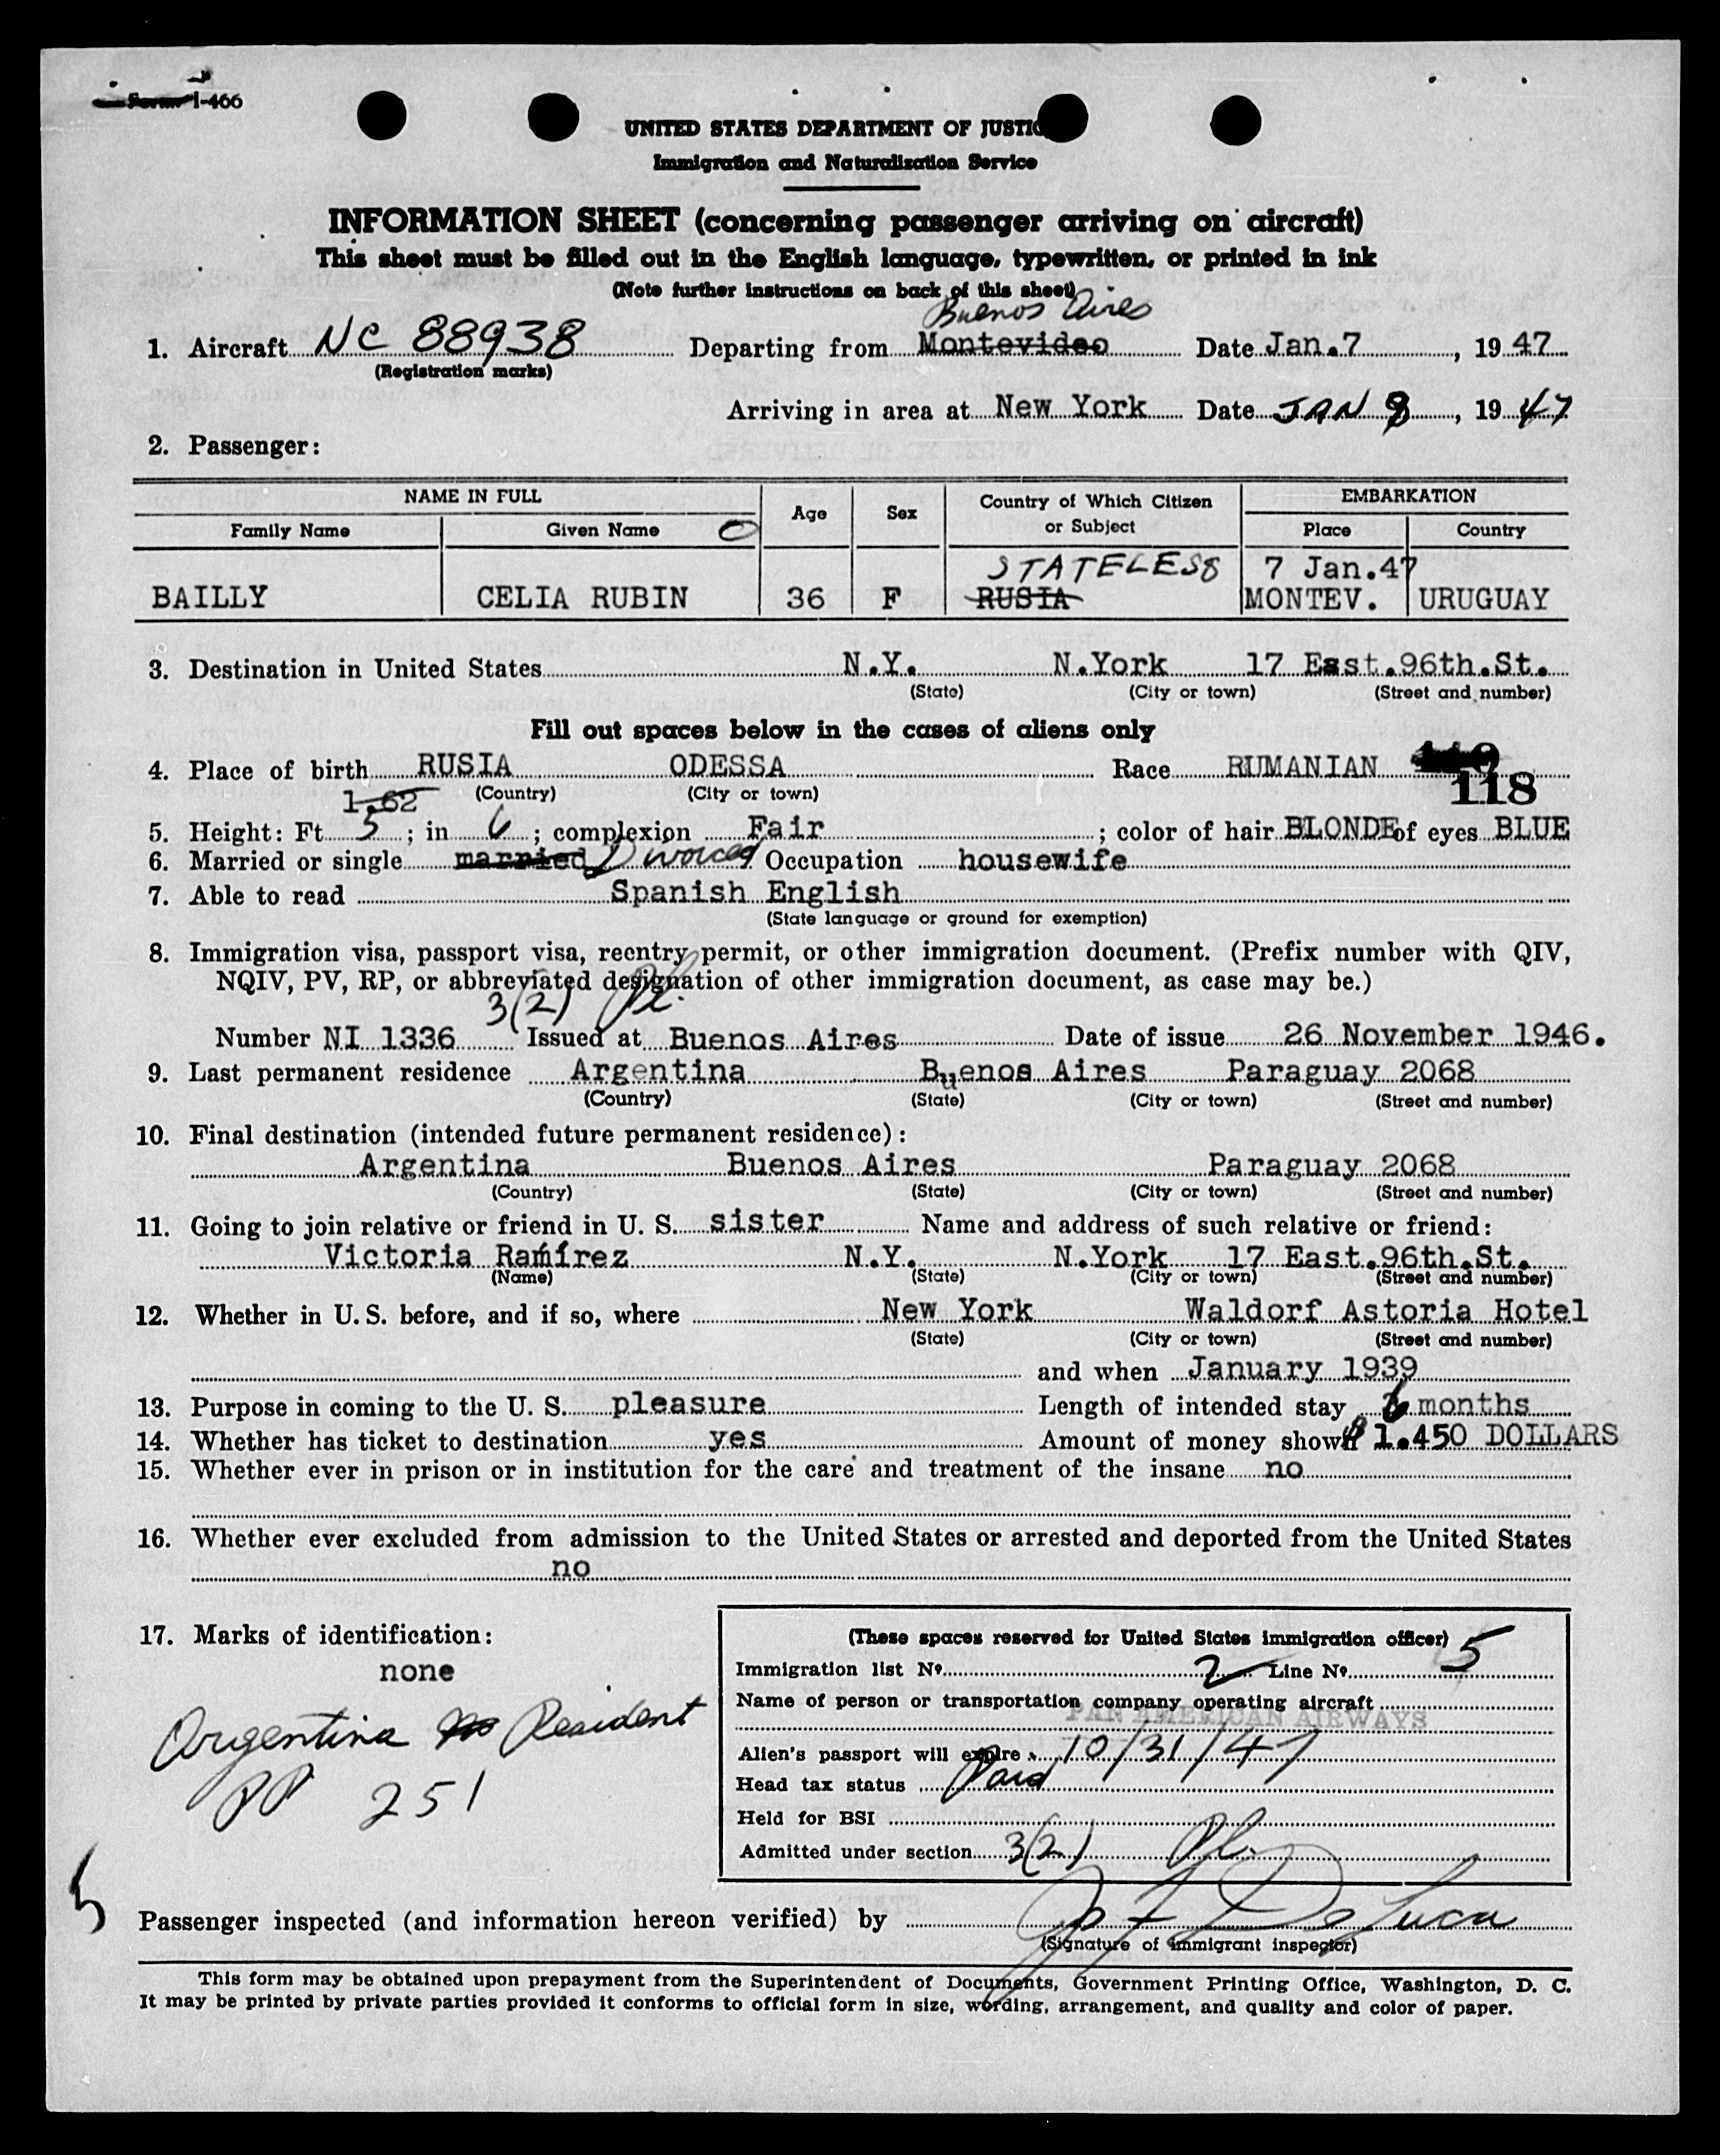 Form I-466
UNITED STATES DEPARTMENT OF JUSTIC
Immigration and Naturalization Service
INFORMATION SHEET (concerning passenger arriving on aircraft)
This sheet must be filled out in the English language, typewritten, or printed in ink
(Note further instructions on back of this sheet)
Buenos Aires
1. Aircraft NC 88938 Departing from Montevideo Date Jan.7, 19 47
(Registration marks)
Arriving in area at New York Date JAN 8, 19 47
2. Passenger:
NAME IN FULL Age Sex Country of Which Citizen or Subject EMBARKATION
Family Name Given Name Place Country
STATELESS 7 Jan.47
BAILLY CELIA RUBIN 36 F RUSIA MONTEV. URUGUAY
3. Destination in United States N.Y. N.York 17 East.96th.St.
(State) (City or town) (Street and number)
Fill out spaces below in the cases of aliens only
4. Place of birth RUSIA ODESSA Race RUMANIAN
118
1.62 (Country) (City or town)
5. Height: Ft 5; in 6; complexion Fair; color of hair BLONDE of eyes BLUE
6. Married or single married Divorced Occupation housewife
7. Able to read Spanish English
(State language or ground for exemption)
8. Immigration visa, passport visa, reentry permit, or other immigration document. (Prefix number with QIV,
NQIV, PV, RP, or abbreviated designation of other immigration document, as case may be.)
3(2) Pl.
Number NI 1336 Issued at Buenos Aires Date of issue 26 November 1946.
9. Last permanent residence Argentina Buenos Aires Paraguay 2068
(Country) (State) (City or town) (Street and number)
10. Final destination (intended future permanent residence):
Argentina Buenos Aires Paraguay 2068
(Country) (State) (City or town) (Street and number)
11. Going to join relative or friend in U. S. sister Name and address of such relative or friend:
Victoria Ramírez N.Y. N.York 17 East.96th.St.
(Name) (State) (City or town) (Street and number)
12. Whether in U. S. before, and if so, where New York Waldorf Astoria Hotel
(State) (City or town) (Street and number)
and when January 1939
13. Purpose in coming to the U. S. pleasure Length of intended stay 6 months
14. Whether has ticket to destination yes Amount of money shown $ 1.450 DOLLARS
15. Whether ever in prison or in institution for the care and treatment of the insane no
16. Whether ever excluded from admission to the United States or arrested and deported from the United States
no
17. Marks of identification:
none
Argentina Resident
PP 251
(These spaces reserved for United States immigration officer)
Immigration list No. 2 Line No. 5
Name of person or transportation company operating aircraft
PAN AMERICAN AIRWAYS
Alien's passport will expire 10/31/47
Head tax status Paid
Held for BSI
Admitted under section 3(2) Pl.
5
Passenger inspected (and information hereon verified) by J F De Luca
(Signature of immigrant inspector)
This form may be obtained upon prepayment from the Superintendent of Documents, Government Printing Office, Washington, D. C.
It may be printed by private parties provided it conforms to official form in size, wording, arrangement, and quality and color of paper.